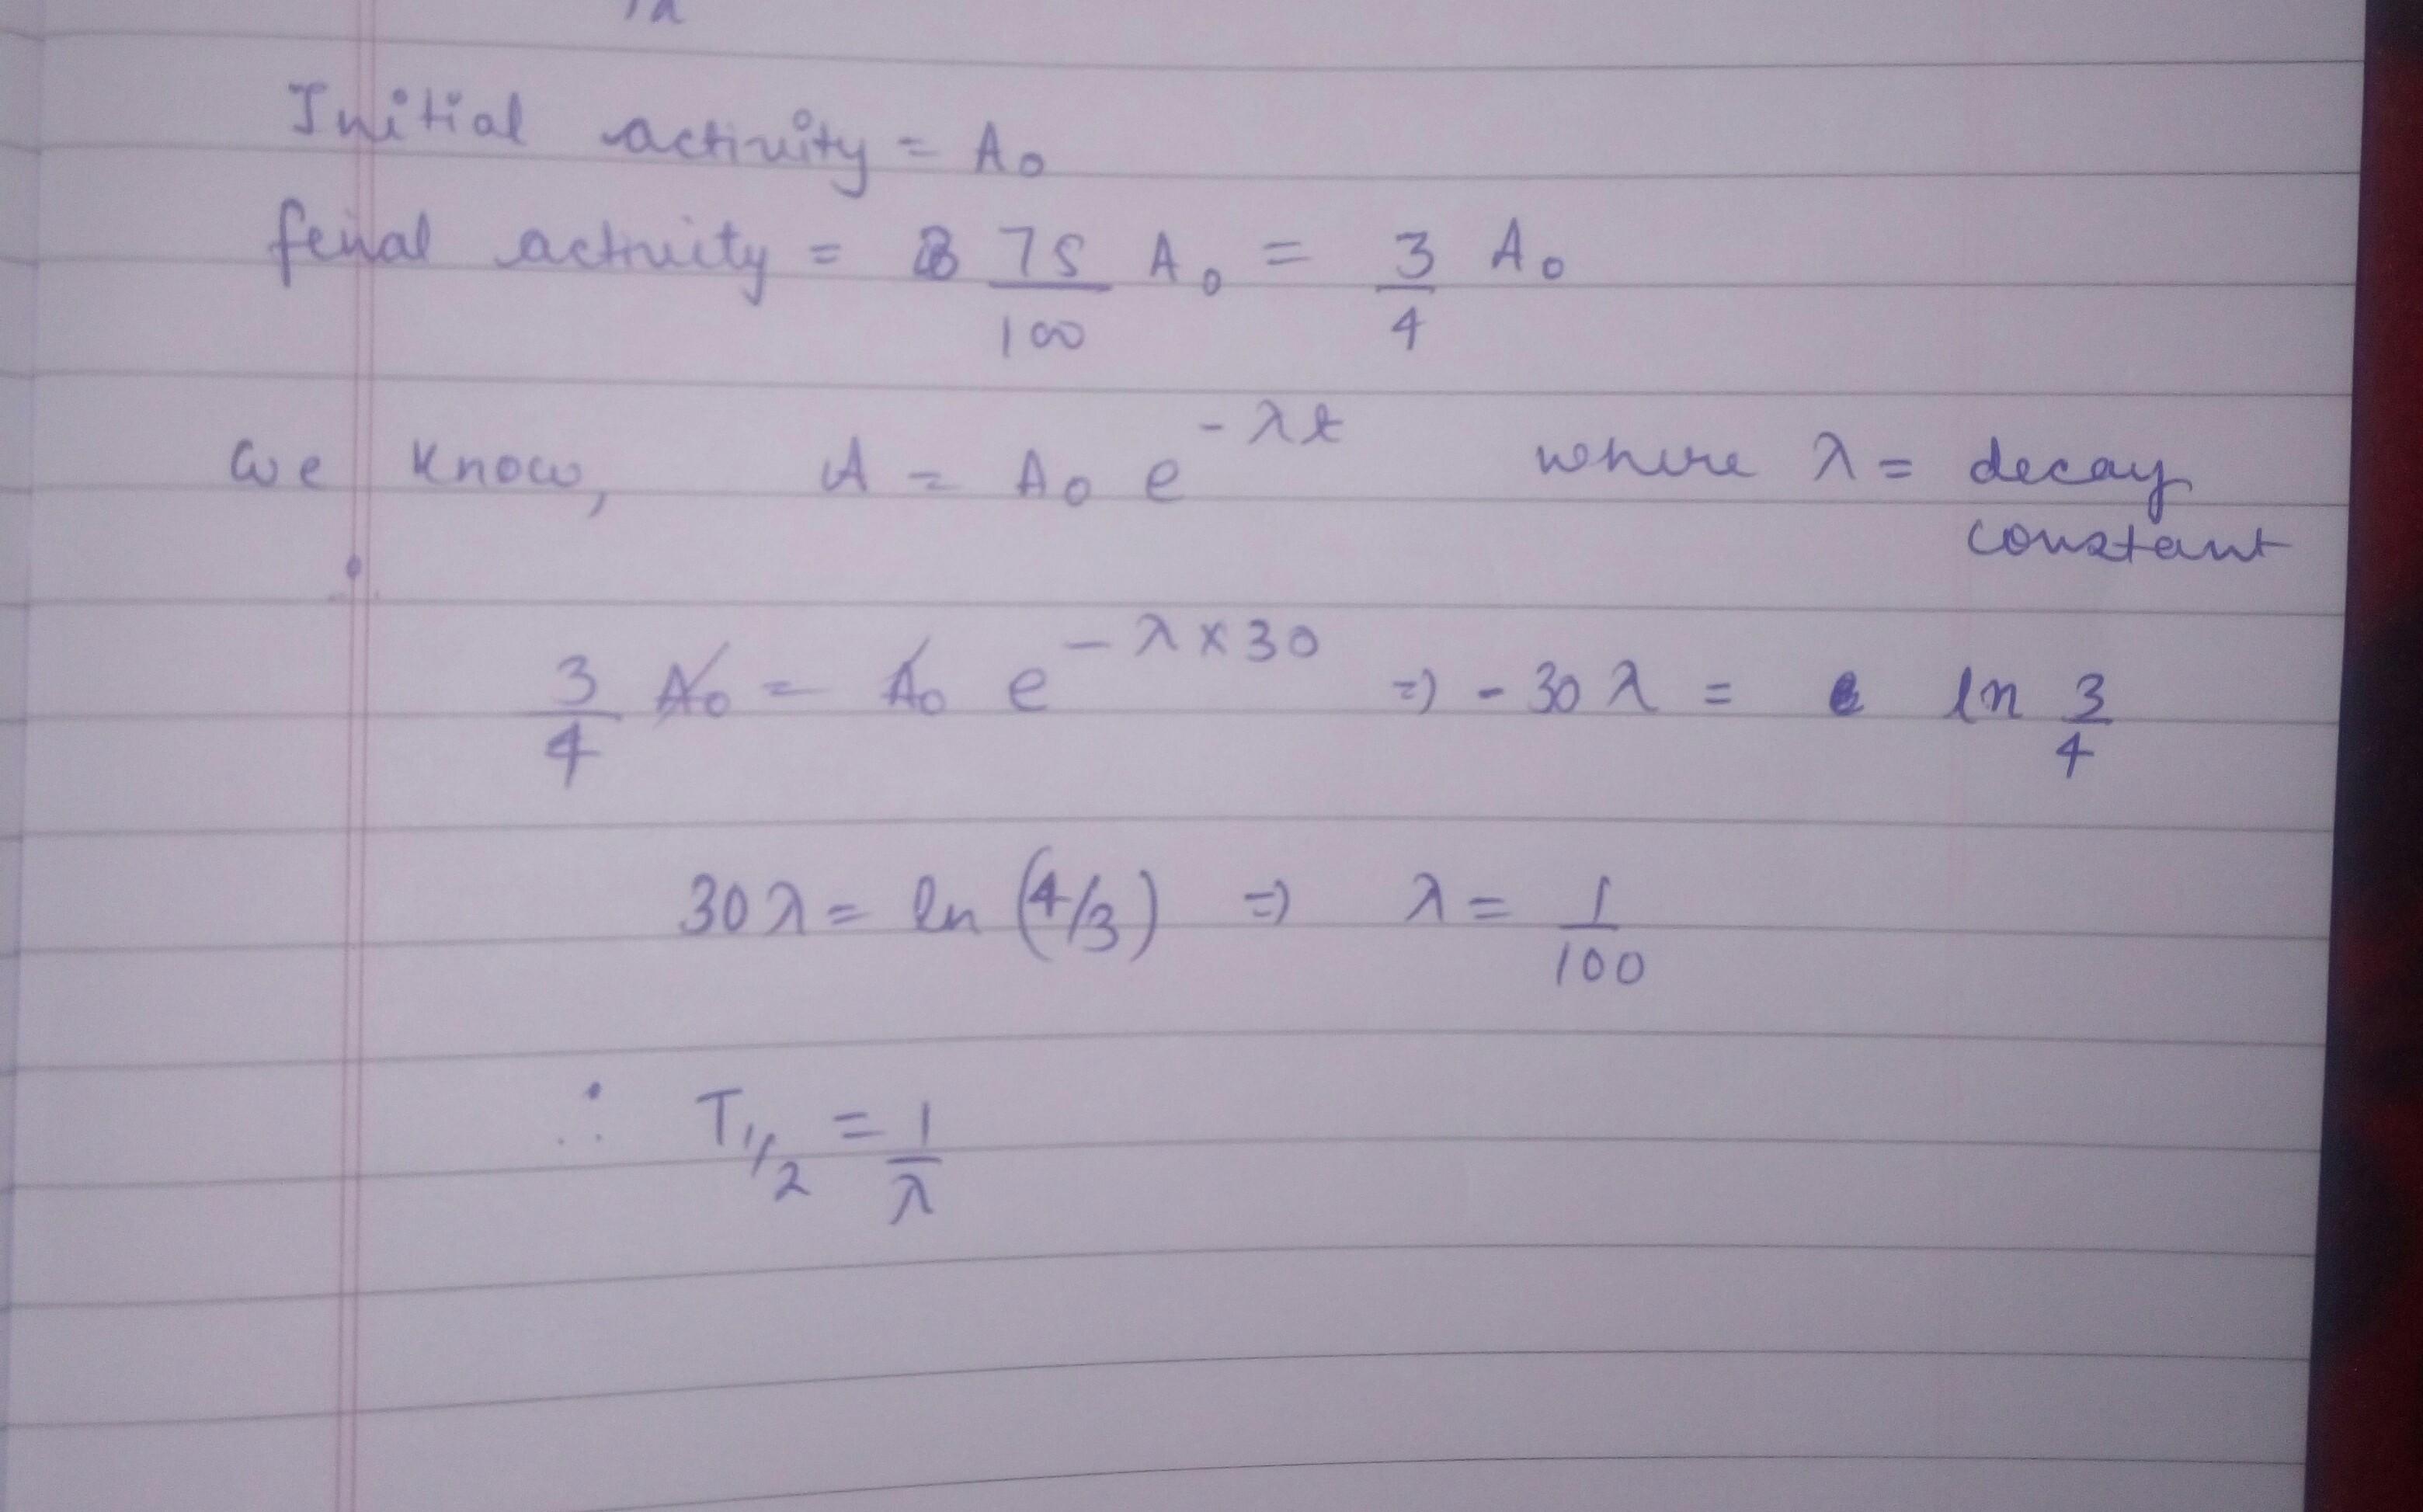 Initial activity = A₀
fenal activity = 75/100 A₀ = 3/4 A₀
We know, A = A₀ e^(-λt) where λ = decay
constant
3/4 A₀ = A₀ e^(-λ×30) ⇒ -30λ = ln 3/4
30λ = ln (4/3) ⇒ λ = 1/100
∴ T1/2 = 1/λ